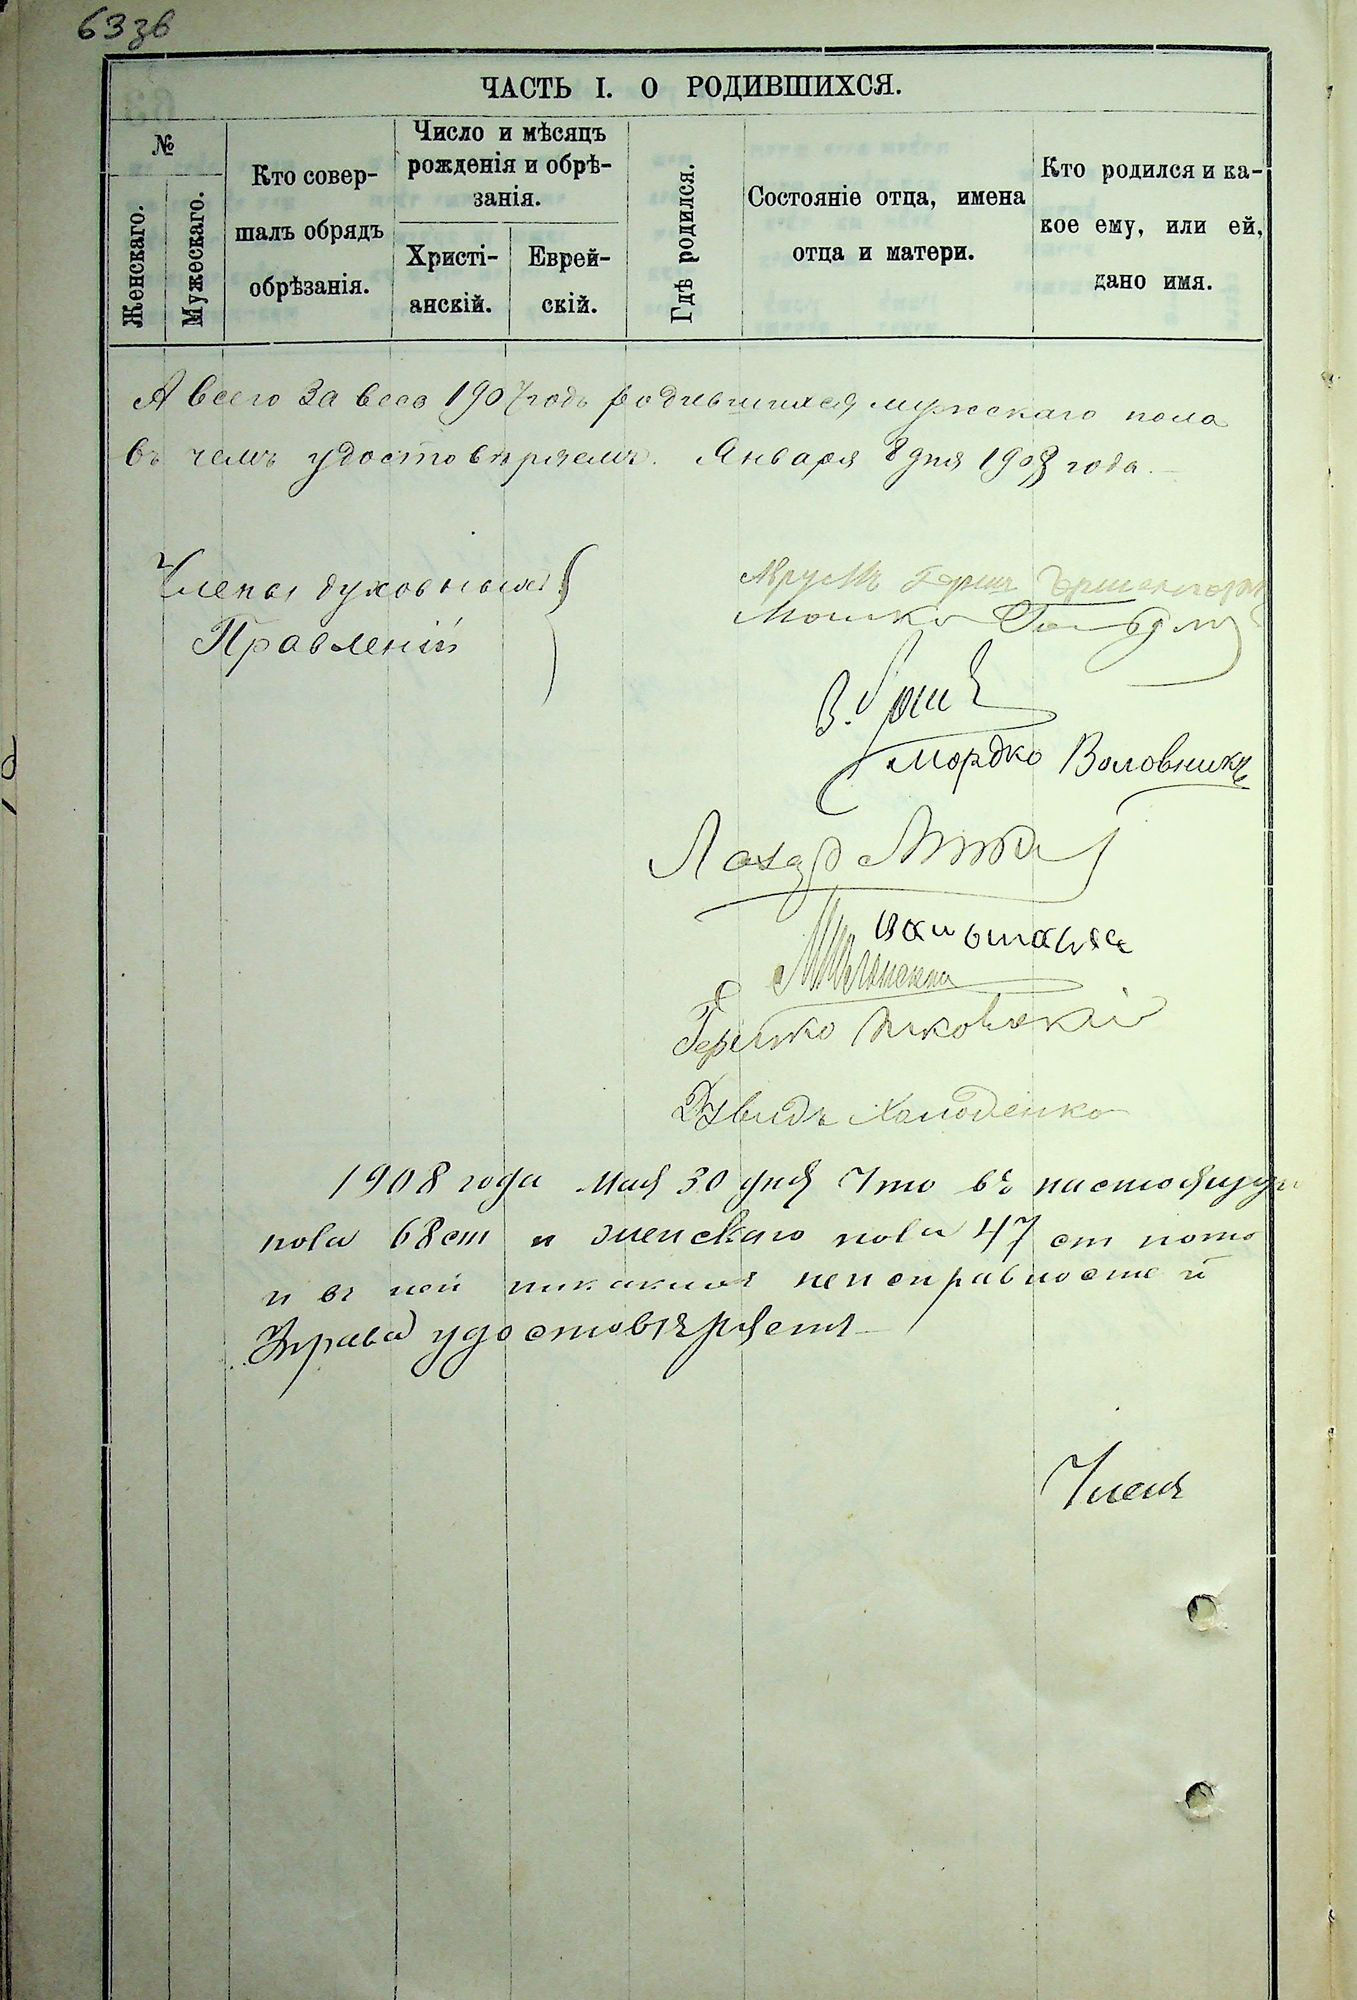 63 зв
ЧАСТЬ I. О РОДИВШИХСЯ.
№
Женскаго.
Мужескаго.
Кто совер-
шалъ обрядъ
обрѣзанія.
Число и мѣсяцъ
рожденія и обрѣ-
занія.
Христі-
анскій.
Еврей-
скій.
Гдѣ родился.
Состояніе отца, имена
отца и матери.
Кто родился и ка-
кое ему, или ей,
дано имя.
А всего За весь 1907 годъ родившихся мужскаго пола
въ чемъ удостовѣряемъ. Января 8 дня 1908 года.
Члены духовныхъ
Правленій
Мошко
В.
Мордко Воловникъ
Лазар
Гершко
Давидъ Холоденко
1908 года мая 30 дня Что въ настоящую
пола 68 ст и женскаго пола 47 ст
и въ ней никакихъ неисправностей
Управа удостовѣряетъ
Члены